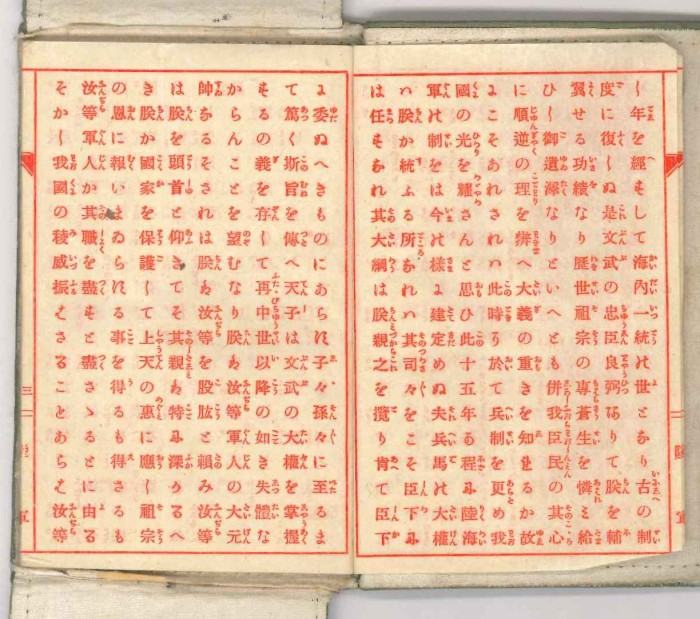 し年を經すして海內一統の世となり古の制
度に復しぬ是文武の忠臣良弼ありて朕を輔
翼せる功績なり歷世祖宗の專蒼生を憐み給
ひし御遺澤なりといへとも併我臣民の其心
に順逆の理を辨へ大義の重きを知れるか故
にこそあれされは此時に於て兵制を更め我
國の光を耀さんと思ひ此十五年か程に陸海
軍の制をは今の樣に建定めぬ夫兵馬の大權
は朕か統ふる所なれは其司々をこそ臣下に
は任すなれ其大綱は朕親之を攬り肯て臣下
に委ぬへきものにあらす子々孫々に至るま
て篤く斯旨を傳へ天子は文武の大權を掌握
するの義を存して再中世以降の如き失體な
からんことを望むなり朕は汝等軍人の大元
帥なるそされは朕は汝等を股肱と賴み汝等
は朕を頭首と仰きてそ其親は特に深かるへ
き朕か國家を保護して上天の惠に應し祖宗
の恩に報いまゐらする事を得るも得さるも
汝等軍人か其職を盡すと盡さゝるとに由る
そかし我國の稜威振はさることあらは汝等
三